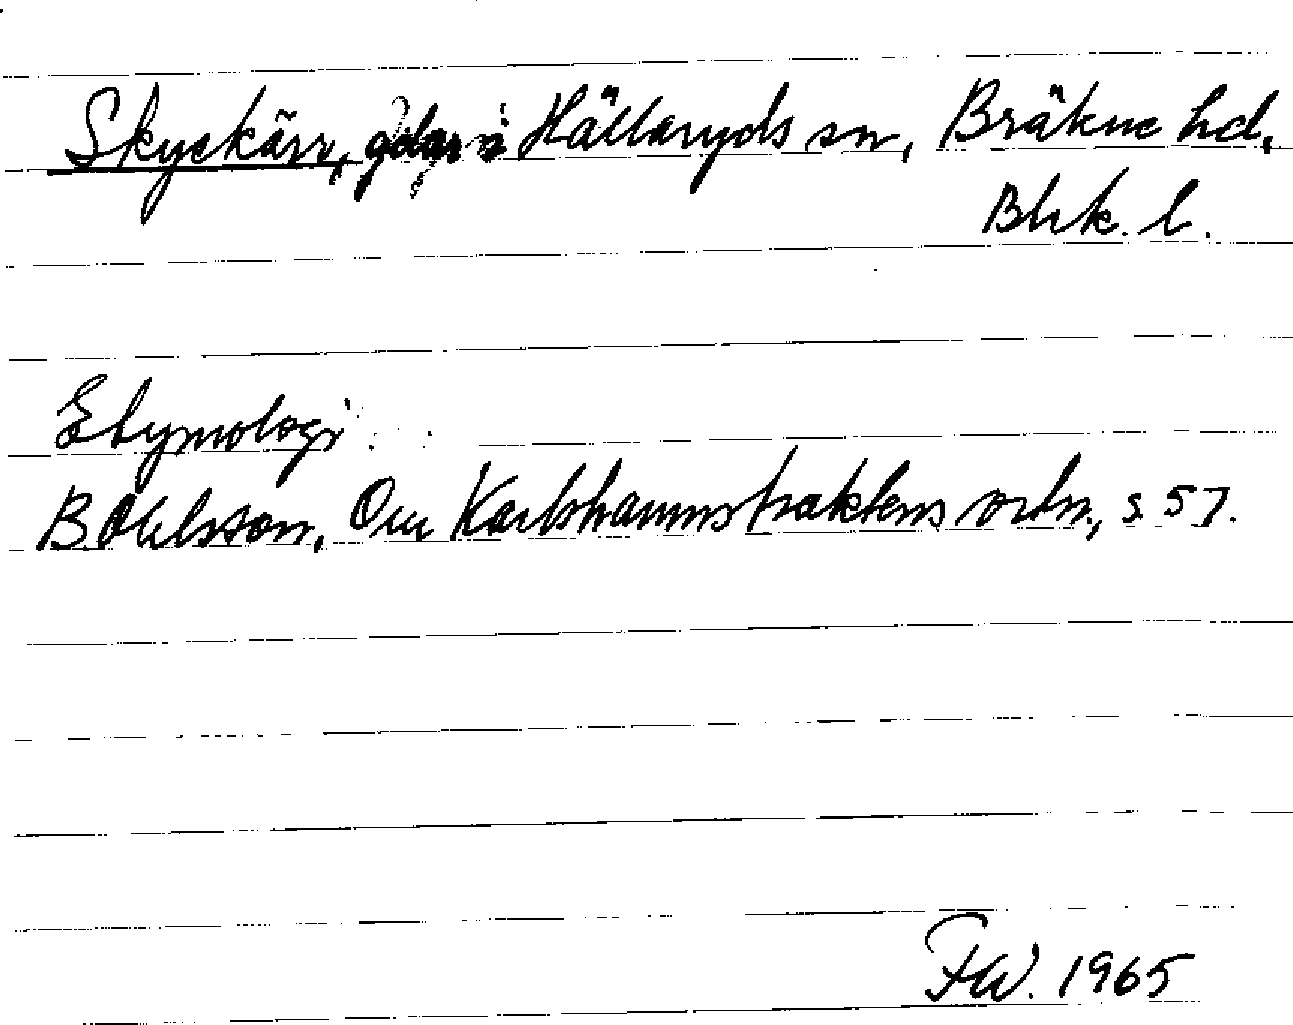 Skyekärr, gdar i Hällaryds sn, Bräkne hd,
Blek. l.
Etymologi:
B. Ohlsson, Om Karlshamnstraktens ortn., s. 57.
FW. 1965